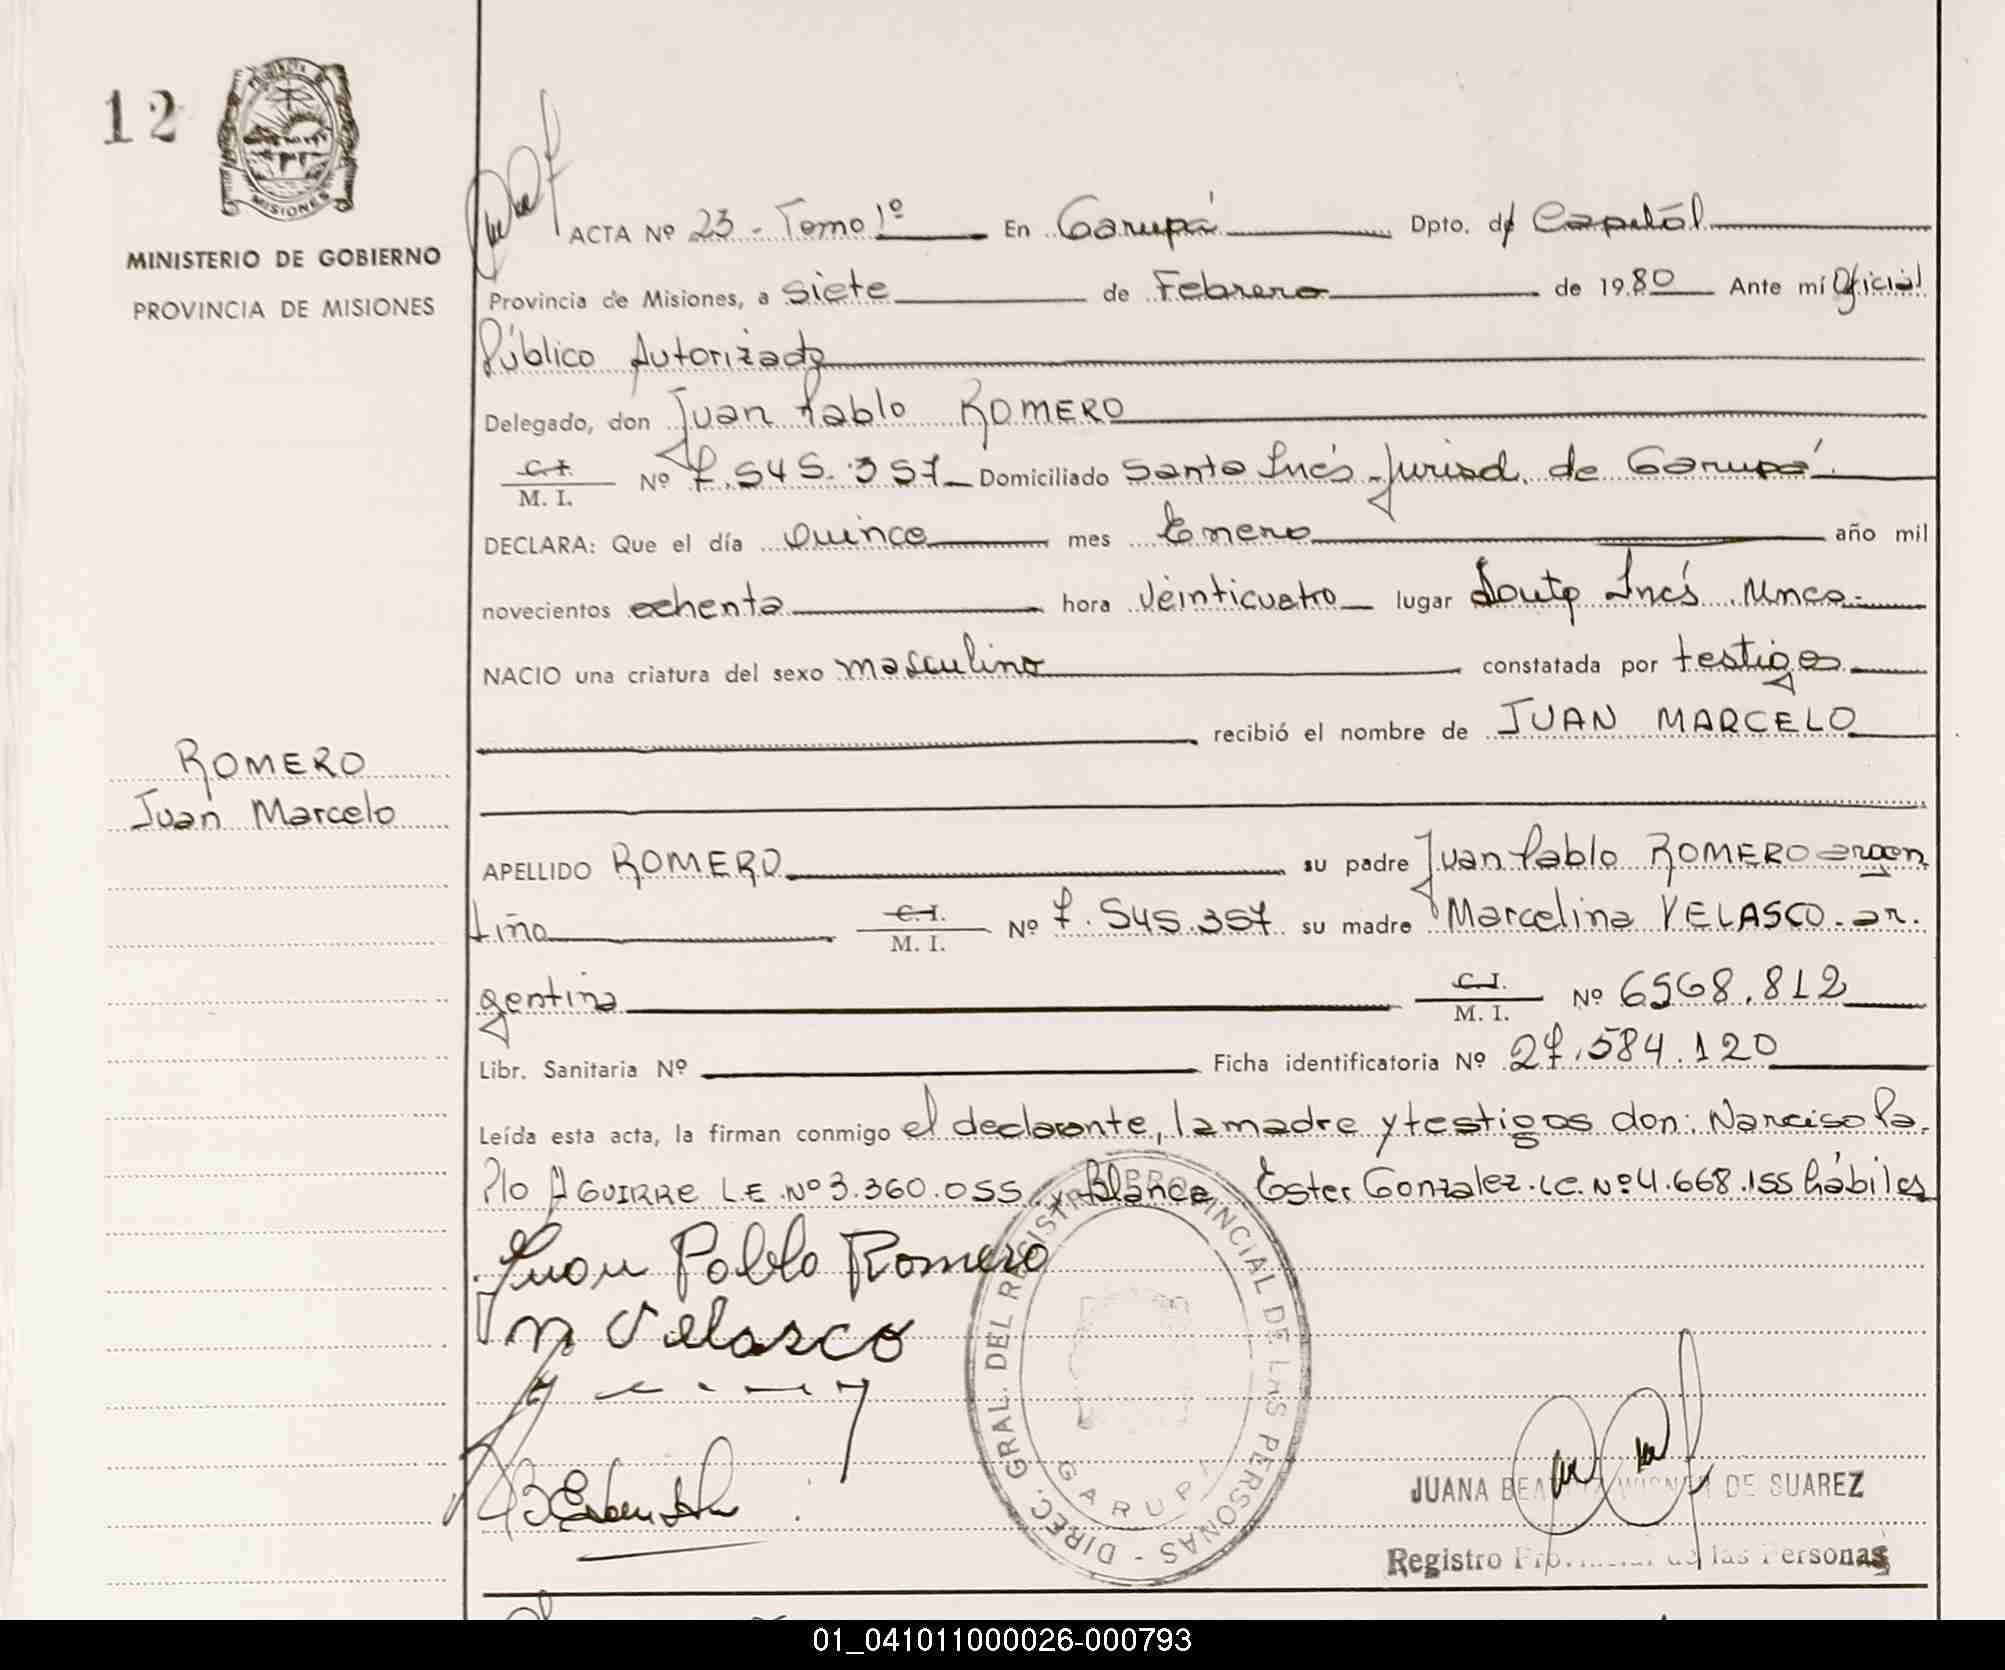 12
PROVINCIA DE
MISIONES
MINISTERIO DE GOBIERNO
PROVINCIA DE MISIONES
ACTA Nº 23 - Tomo 1º En Garupá Dpto. de Capital
Provincia de Misiones, a siete de Febrero de 1980 Ante mí Oficial
Público Autorizado
Delegado, don Juan Pablo ROMERO
C. I.
M. I. Nº 7.545.357 Domiciliado Santa Inés - Jurisd. de Garupá
DECLARA: Que el día quince mes Enero año mil
novecientos ochenta hora veinticuatro lugar Santa Inés
NACIO una criatura del sexo masculino constatada por testigos
recibió el nombre de JUAN MARCELO
ROMERO
Juan Marcelo
APELLIDO ROMERO su padre Juan Pablo ROMERO argen
tino C. I. M. I. Nº 7.545.357 su madre Marcelina VELASCO - ar.
gentina C. I. M. I. Nº 6568.812
Libr. Sanitaria Nº Ficha identificatoria Nº 27.584.120
Leída esta acta, la firman conmigo el declarante, la madre y testigos don: Narciso Pa.
blo AGUIRRE L.E. Nº 3.360.055 y Blanca Ester Gonzalez. L.C. Nº 4.668.155 hábiles
Juan Pablo Romero
M Velasco
DIREC. GRAL. DEL REGISTRO PROVINCIAL DE LAS PERSONAS -
GARUPA
JUANA BEATRIZ DE SUAREZ
Registro Provincial de las Personas
01_041011000026-000793